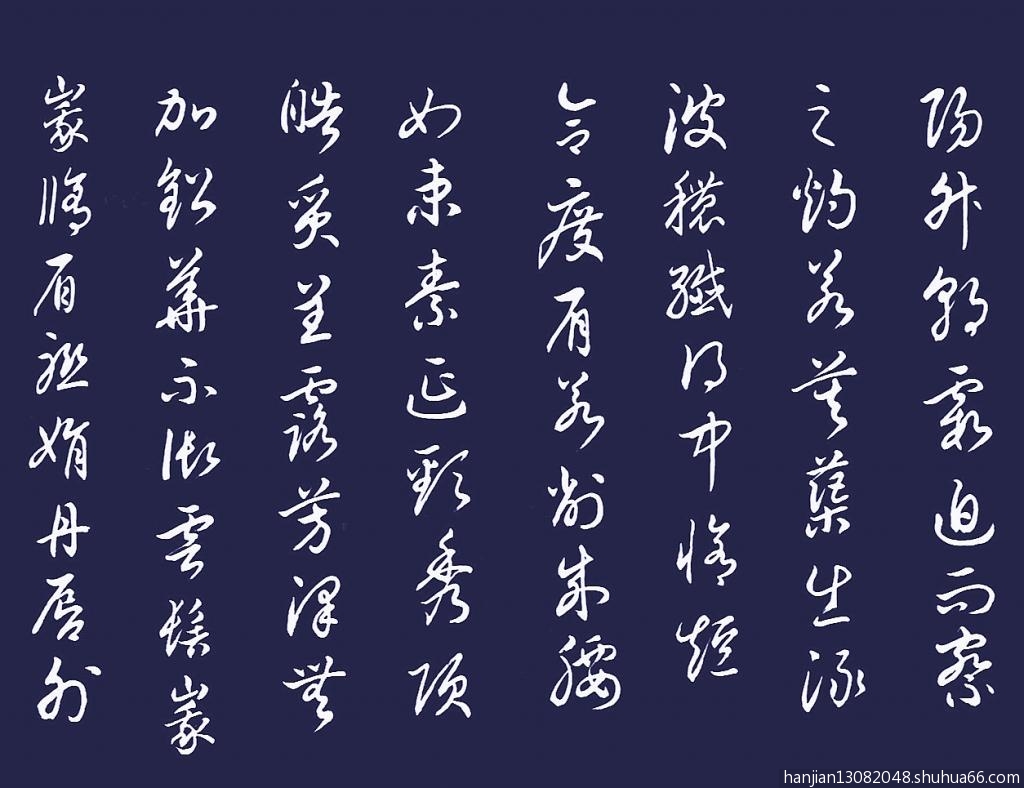 陽升朝霞迫而察
之灼若芙蕖出淥
波穠纖得中脩短
合度肩若削成腰
如束素延頸秀項
皓質呈露芳澤無
加鉛華不御雲髻峩
峩脩眉聯娟丹唇外
hanjian13082048.shuhua66.com